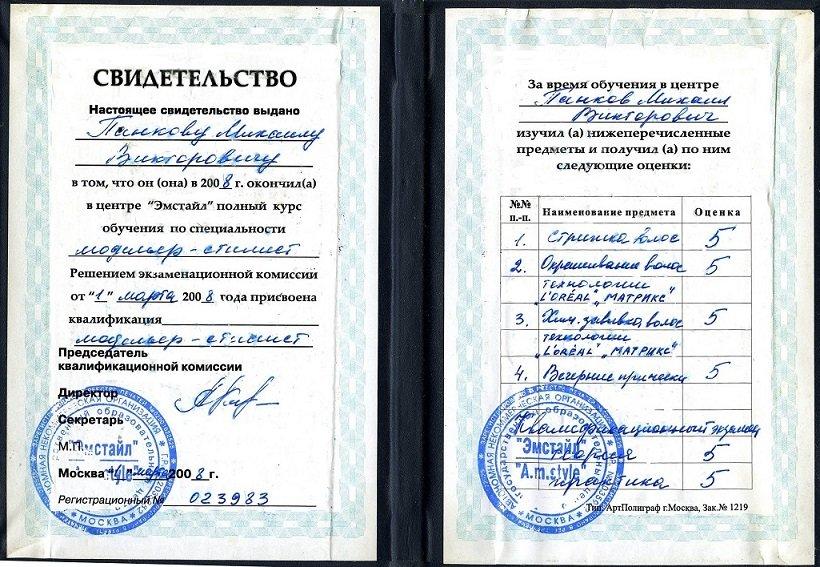 СВИДЕТЕЛЬСТВО
Настоящее свидетельство выдано
Панкову Михаилу
Викторовичу
в том, что он (она) в 2008 г. окончил(а)
в центре "Эмстайл" полный курс
обучения по специальности
модельер-стилист
Решением экзаменационной комиссии
от "1" марта 2008 года присвоена
квалификация
модельер-стилист
Председатель
квалификационной комиссии
Директор
Секретарь
М.П.
"Эмстайл"
Москва "1" марта 2008 г.
Регистрационный № 023983
МОСКВА
За время обучения в центре
Панков Михаил
Викторович
изучил (а) нижеперечисленные
предметы и получил (а) по ним
следующие оценки:
№№ п.-п. Наименование предмета Оценка
1. Стрижка волос 5
2. Окрашивание волос 5
технологии
"L'OREAL" "МАТРИКС"
3. Хим. завивка волос 5
технологии
"L'OREAL" "МАТРИКС"
4. Вечерние прически 5
Квалификационный экзамен
"Эмстайл" теория 5
"A.m.ctyle"
практика 5
МОСКВА
Тип. АртПолиграф г.Москва, Зак.№ 1219